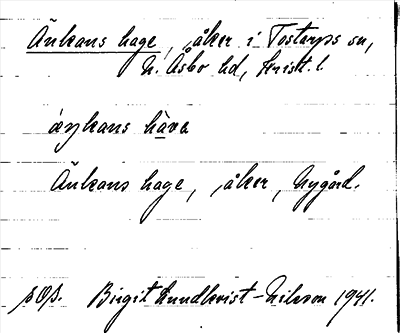 Änkans hage, åker i Tostarps sn,
N. Åsbo hd, Krist. l.
ä̀ŋkans hàva
Änkans hage, åker, Nygård.
sOp. Birgit Lundkvist-Nilsson 1941.